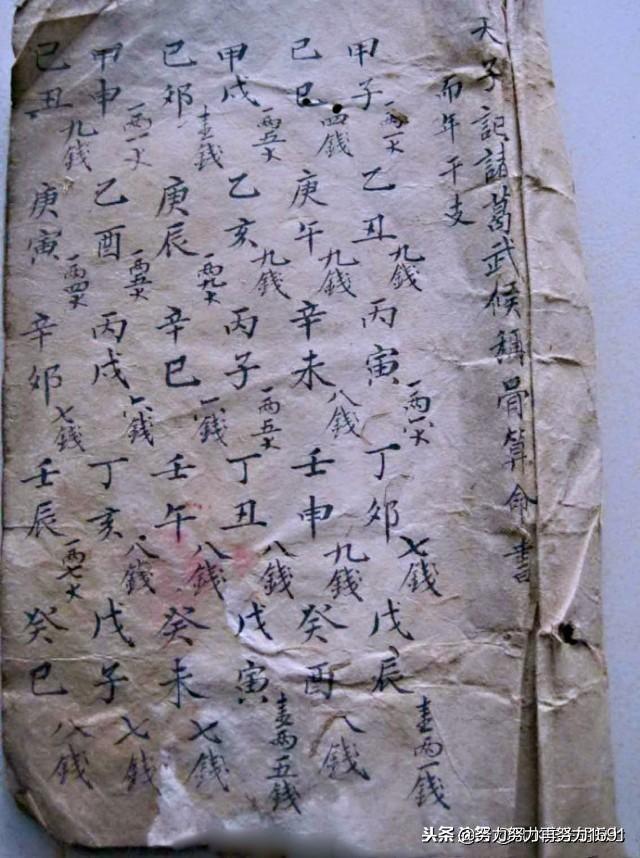 天子記諸葛武候稱骨算命書
而年干支
甲子 一兩一大 乙丑 九錢 丙寅 一兩八大 丁卯 七錢 戊辰 壹兩一錢
己巳 四錢 庚午 九錢 辛未 八錢 壬申 九錢 癸酉 八錢
甲戌 一兩五大 乙亥 九錢 丙子 一兩五大 丁丑 八錢 戊寅 壹兩五錢
己卯 壹錢 庚辰 一兩九大 辛巳 錢 壬午 八錢 癸未 七錢
甲申 一兩一大 乙酉 一兩五大 丙戌 六錢 丁亥 八錢 戊子 七錢
己丑 九錢 庚寅 一兩四大 辛卯 七錢 壬辰 一兩七大 癸巳 八錢
头条 @努力努力再努力